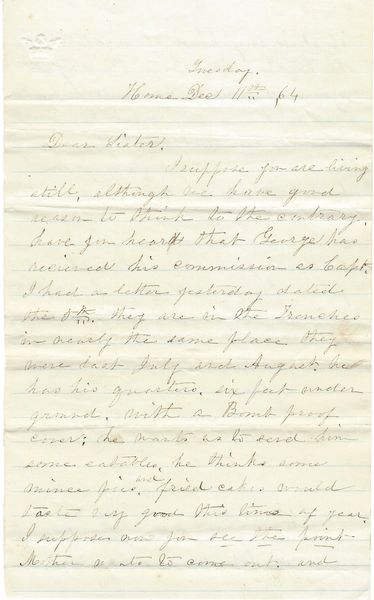 Tuesday.
Home Dec 11th ,64
Dear Sister.
I suppose you are living
still, although we have good
reason to think to the contrary.
have you heard that George has
recieved his commission as Capt.
I had a letter yesterday dated
the 8th. they are in the Trenches
in nearly the same place they
were last July and August. he
has his quarters, six feet under
ground, with a Bomb proof
cover; he wants us to send him
some eatables, he thinks some
mince pies, and fried cakes would
taste very good this time of year.
I suppose now you see the point.
Mother wants to come out. and